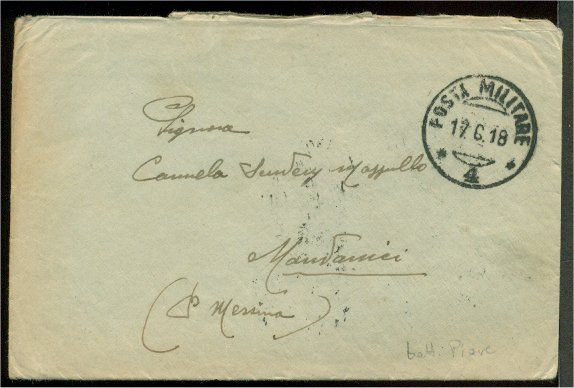 POSTA MILITARE
17.6.18
4
Signora
Carmela Mazzullo
Mandanici
(P Messina)
batt. Piave